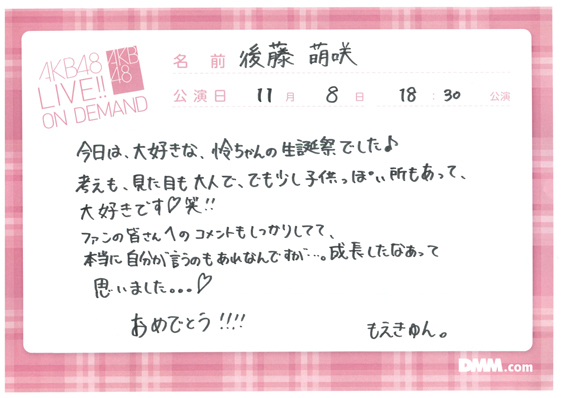 AKB48
LIVE!!
ON DEMAND
AKB
48
名 前 後藤 萌咲
公演日 11月 8日 18:30 公演
今日は、大好きな、怜ちゃんの生誕祭でした♪
考えも、見た目も大人で、でも少し子供っぽい所もあって、
大好きです♡笑!!
ファンの皆さんへのコメントもしっかりしてて、
本当に自分が言うのもあれなんですが…。成長したなあって
思いました。。。♡
おめでとう!!!!
もえきゅん。
DMM.com